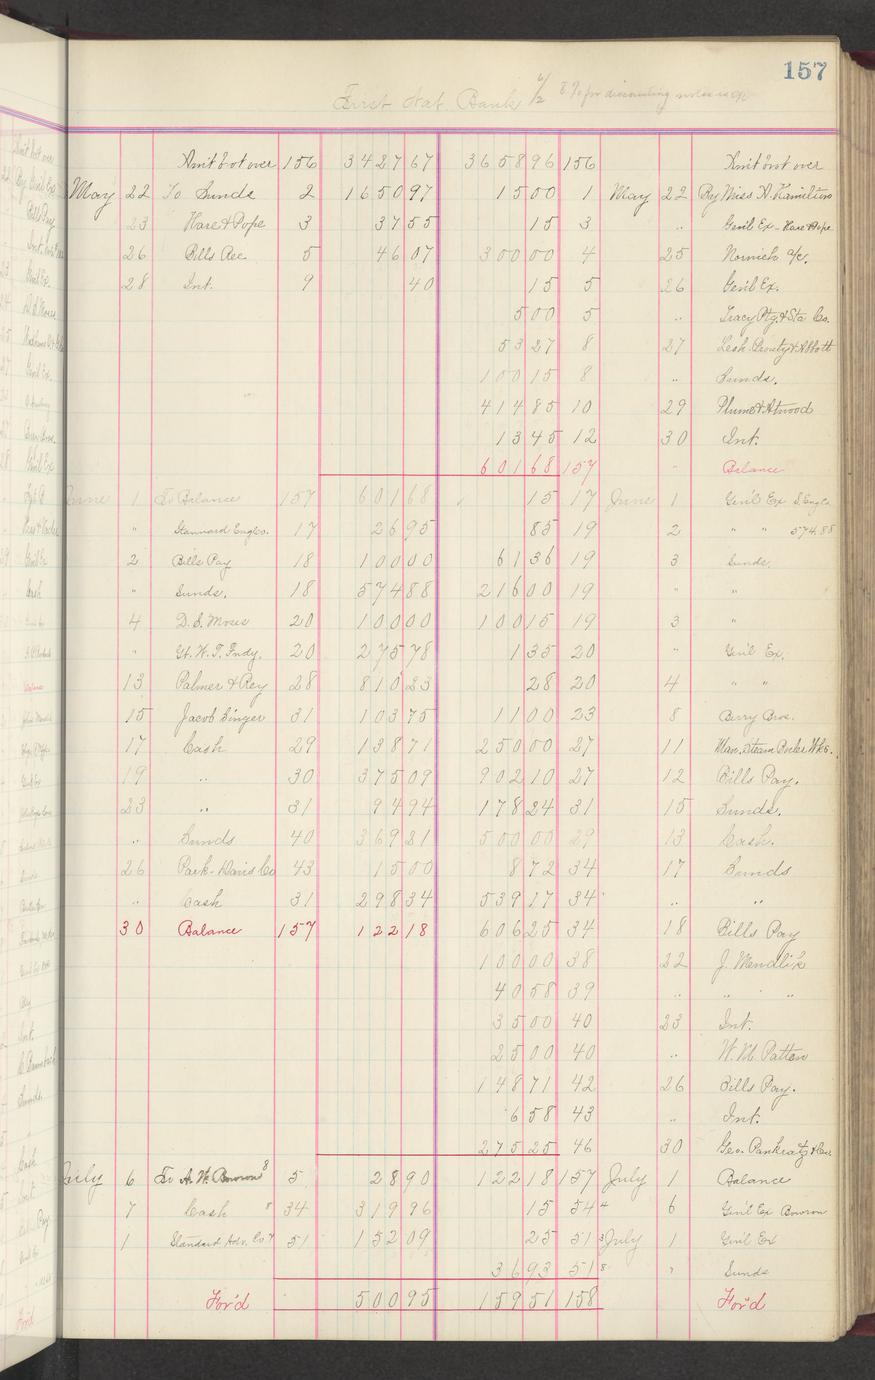 157
First Nat Bank 6/2 8% for discounting notes
Am't br't over 156 3427 67 3658 96 156 Am't br't over
May 22 To Sunds 2 1650 97 15 00 1 May 22 By Miss A. Hamilton
23 Hare & Pope 3 37 55 15 3 " Gen'l Ex - Hare & Pope
26 Bills Rec. 5 46 07 300 00 4 25 Norwich a/c.
28 Int. 9 40 15 5 26 Gen'l Ex.
5 00 5 " Tracy Ptg. & Sta Co.
53 27 8 27 Lesh. Prouty & Abbott
100 15 8 " Sunds.
414 85 10 29 Plume & Atwood
13 45 12 30 Int.
601 68 157 " Balance
June 1 To Balance 157 601 68 15 17 June 1 Gen'l Ex S. Eng Co
" Stannard Eng Co. 17 26 95 85 19 2 " " 574.88
2 Bills Pay 18 100 00 61 36 19 3 Sunds
" Sunds. 18 574 88 216 00 19 " "
4 D. S. Moses 20 100 00 100 15 19 3 "
" Gt. W. T. Fndy. 20 275 78 1 35 20 " Gen'l Ex.
13 Palmer & Rey 28 810 23 28 20 4 " "
15 Jacob Singer 31 103 75 11 00 23 8 Berry Bros.
17 Cash 29 138 71 250 00 27 11 Man. Steam Boiler Wks.
19 " 30 375 09 902 10 27 12 Bills Pay.
23 " 31 94 94 178 24 31 15 Sunds.
" Sunds 40 369 21 500 00 29 13 Cash.
26 Park-Davis Co 43 15 00 8 72 34 17 Sunds
" Cash 31 298 34 539 17 34 " "
30 Balance 157 122 18 606 25 34 18 Bills Pay
100 00 38 22 J. Mendlik
40 58 39 " " "
35 00 40 23 Int.
25 00 40 " W. M. Patton
148 71 42 26 Bills Pay.
6 58 43 " Int.
275 25 46 30 Geo. Pankratz
July 6 To A. W. Bowron 8 5 28 90 122 18 157 July 1 Balance
7 Cash 8 34 319 96 15 54 4 6 Gen'l Ex Bowron
1 Standard Adv. Co 7 51 152 09 25 51 3 July 1 Gen'l Ex
36 93 51 8 " Sunds
For'd 500 95 159 51 158 For'd